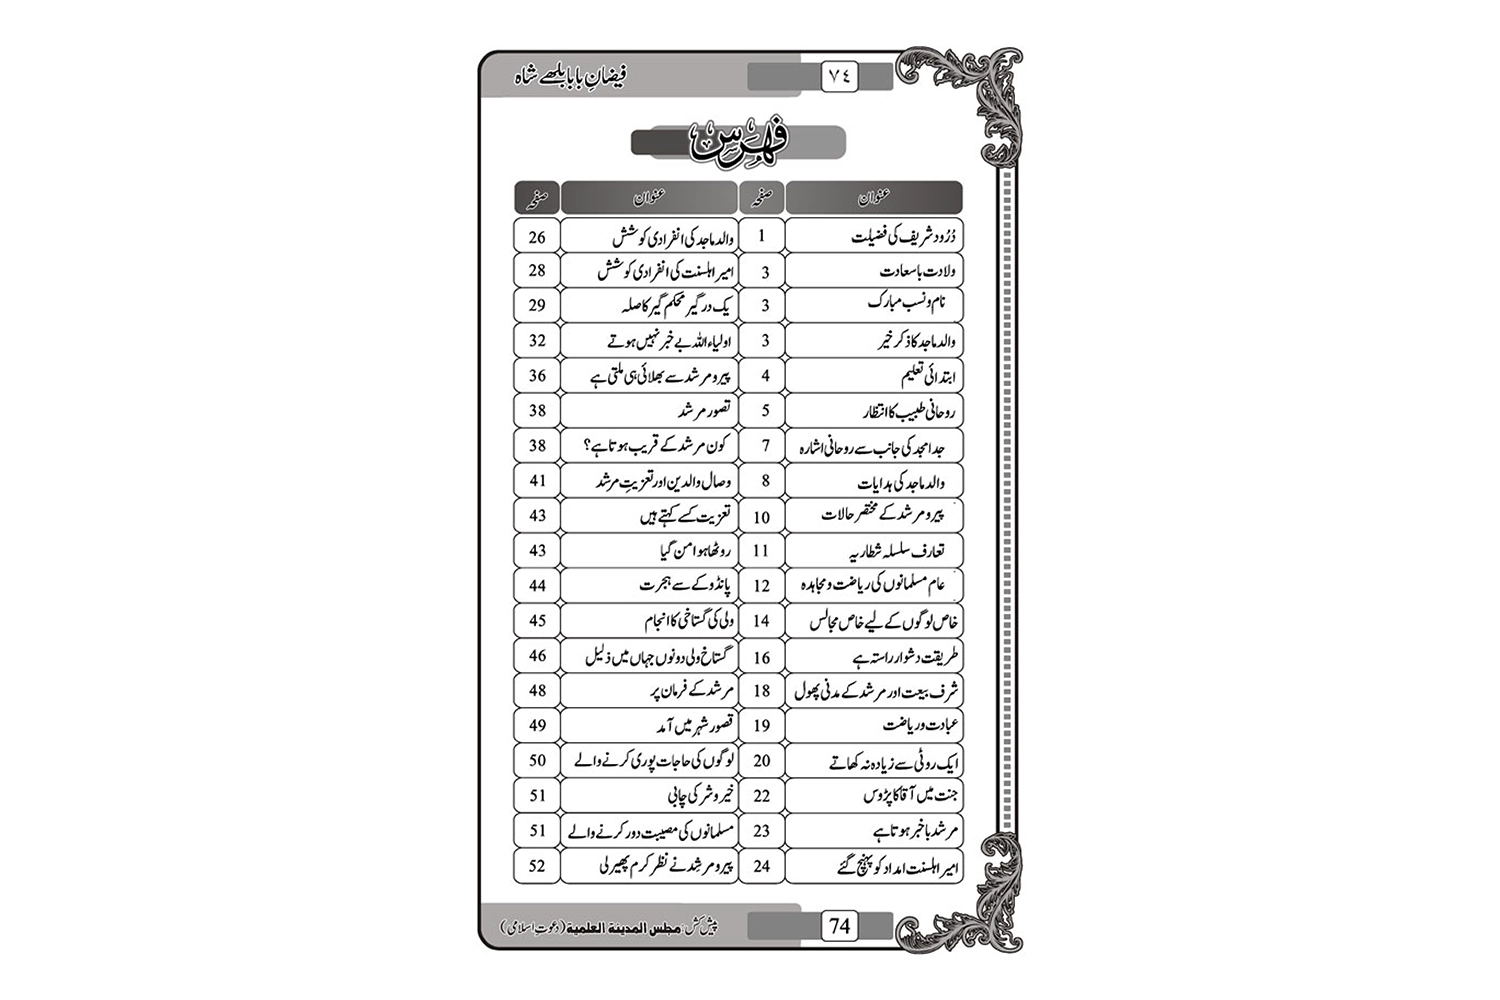 فیضانِ بابا بلھے شاہ ٧٤
فہرس
عنوان صفحہ عنوان صفحہ
دُرُود شریف کی فضیلت 1 والد ماجد کی انفرادی کوشش 26
ولادت باسعادت 3 امیر اہلسنت کی انفرادی کوشش 28
نام و نسب مبارک 3 یک در گیر محکم گیر کا صلہ 29
والد ماجد کا ذکر خیر 3 اولیاء اللہ بے خبر نہیں ہوتے 32
ابتدائی تعلیم 4 پیر و مرشد سے بھلائی ہی ملتی ہے 36
روحانی طبیب کا انتظار 5 تصور مرشد 38
جد امجد کی جانب سے روحانی اشارہ 7 کون مرشد کے قریب ہوتا ہے؟ 38
والد ماجد کی ہدایات 8 وصال والدین اور تعزیتِ مرشد 41
پیر و مرشد کے مختصر حالات 10 تعزیت کسے کہتے ہیں 43
تعارف سلسلہ شطاریہ 11 روٹھا ہوا من گیا 43
عام مسلمانوں کی ریاضت و مجاہدہ 12 پانڈو کے سے ہجرت 44
خاص لوگوں کے لیے خاص مجالس 14 ولی کی گستاخی کا انجام 45
طریقت دشوار راستہ ہے 16 گستاخ ولی دونوں جہاں میں ذلیل 46
شرف بیعت اور مرشد کے مدنی پھول 18 مرشد کے فرمان پر 48
عبادت و ریاضت 19 قصور شہر میں آمد 49
ایک روٹی سے زیادہ نہ کھاتے 20 لوگوں کی حاجات پوری کرنے والے 50
جنت میں آقا کا پڑوس 22 خیر و شر کی چابی 51
مرشد باخبر ہوتا ہے 23 مسلمانوں کی مصیبت دور کرنے والے 51
امیر اہلسنت امداد کو پہنچ گئے 24 پیر و مرشِد نے نظر کرم پھیر لی 52
پیش کش: مجلس المدینة العلمیة (دعوتِ اسلامی) 74